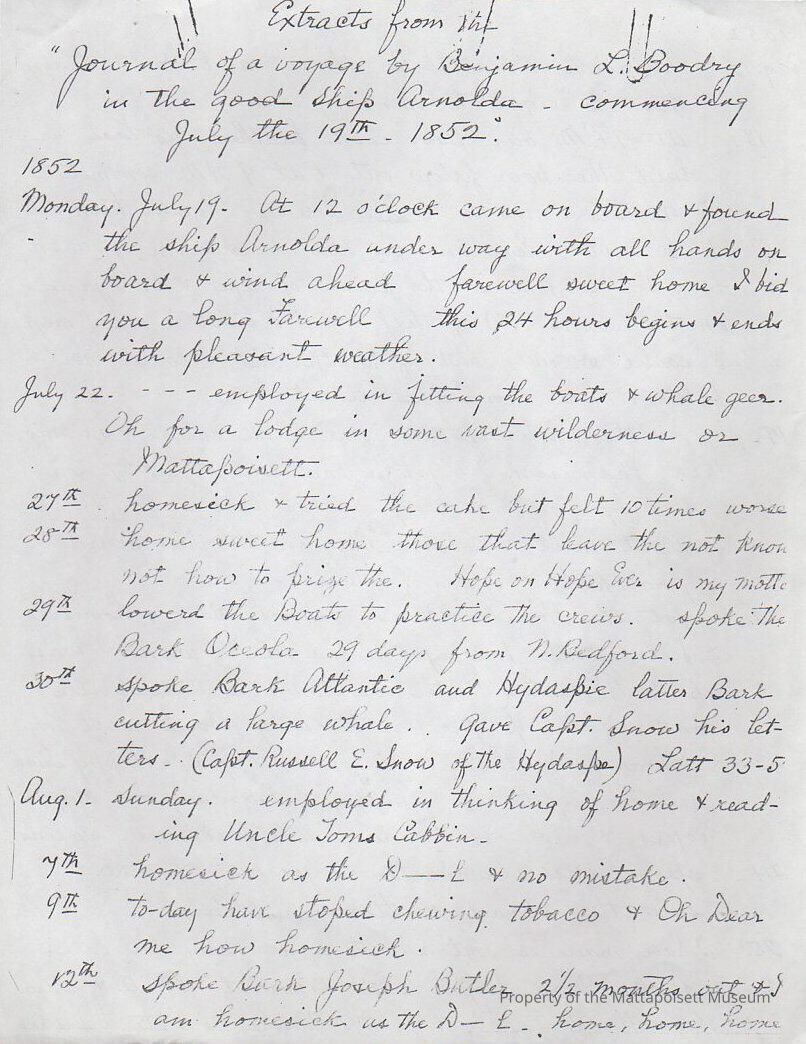 Extracts from the
"Journal of a voyage by Benjamin L. Boodry
in the good ship Arnolda - commencing
July the 19th - 1852."
1852
Monday. July 19. At 12 o'clock came on board & found
the ship Arnolda under way with all hands on
board & wind ahead farewell sweet home I bid
you a long Farewell this 24 hours begins & ends
with pleasant weather.
July 22. - - - employed in fitting the boats & whale geer.
Oh for a lodge in some vast wilderness or
Mattapoisett.
27th homesick & tried the cake but felt 10 times worse
28th home sweet home those that leave the not know
not how to prize the. Hope on Hope Ever is my motto
29th lowerd the Boats to practice the crews. spoke the
Bark Oceola 29 days from N. Bedford.
30th spoke Bark Atlantic and Hydaspie latter Bark
cutting a large whale.. gave Capt. Snow his let-
ters - (Capt. Russell E. Snow of the Hydaspe) Latt 33-5
Aug. 1 - Sunday. employed in thinking of home & read-
ing Uncle Toms Cabbin -
7th homesick as the D——L & no mistake.
9th to-day have stoped chewing tobacco & Oh Dear
me how homesick.
12th spoke Bark Joseph Butler 2 1/2 months out & I
am homesick as the D— L - home, home, home
Property of the Mattapoisett Museum